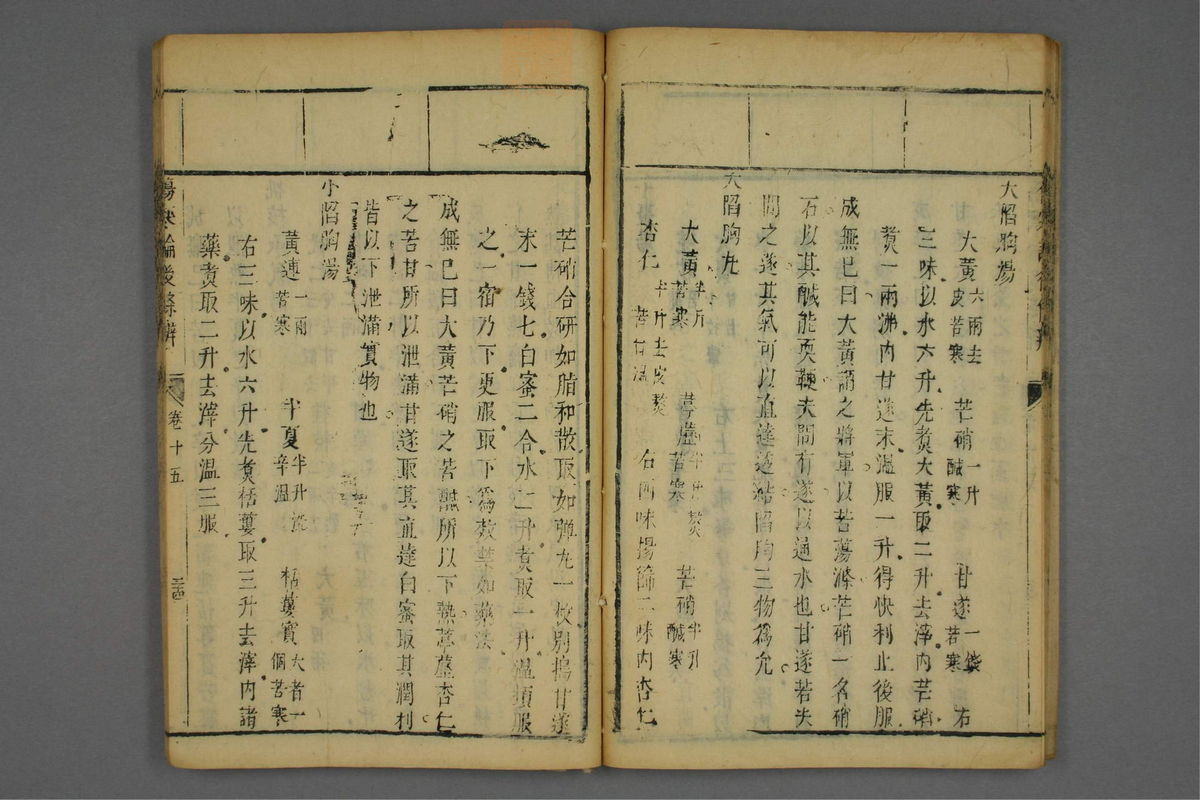 大陷胸湯
大黃六兩去皮苦寒 芒硝一升鹹寒 甘遂一錢苦寒 右
三味以水六升先煑大黃取二升去滓內芒硝
煑一兩沸內甘遂末溫服一升得快利止後服
成無巳曰大黃謂之將軍以苦蕩滌芒硝一名硝
石以其鹹能耎鞕夫間有遂以通水也甘遂若夫
間之遂其氣可以直達透結陷胸三物爲允
大陷胸丸
大黃半斤苦寒 葶藶半升熬苦寒 芒硝半升鹹寒
杏仁半升去皮熬苦甘溫 右四味揚篩二味內杏仁
芒硝合研如脂和散取如弹丸一枚別搗甘遂
末一錢七白蜜二合水二升煑取一升溫頓服
之一宿乃下更服取下爲效禁如藥法
成無巳曰大黃芒硝之苦鹹所以下熱葶藶杏仁
之苦甘所以泄滿甘遂取其直達白蜜取其潤利
皆以下泄滿實物也
小陷胸湯
黃連一兩苦寒 半夏半升洗辛溫 栝蔞實大者一個苦寒
右三味以水六升先煑栝蔞取三升去滓內諸
藥煑取二升去滓分溫三服
傷寒論後條辨 卷十五